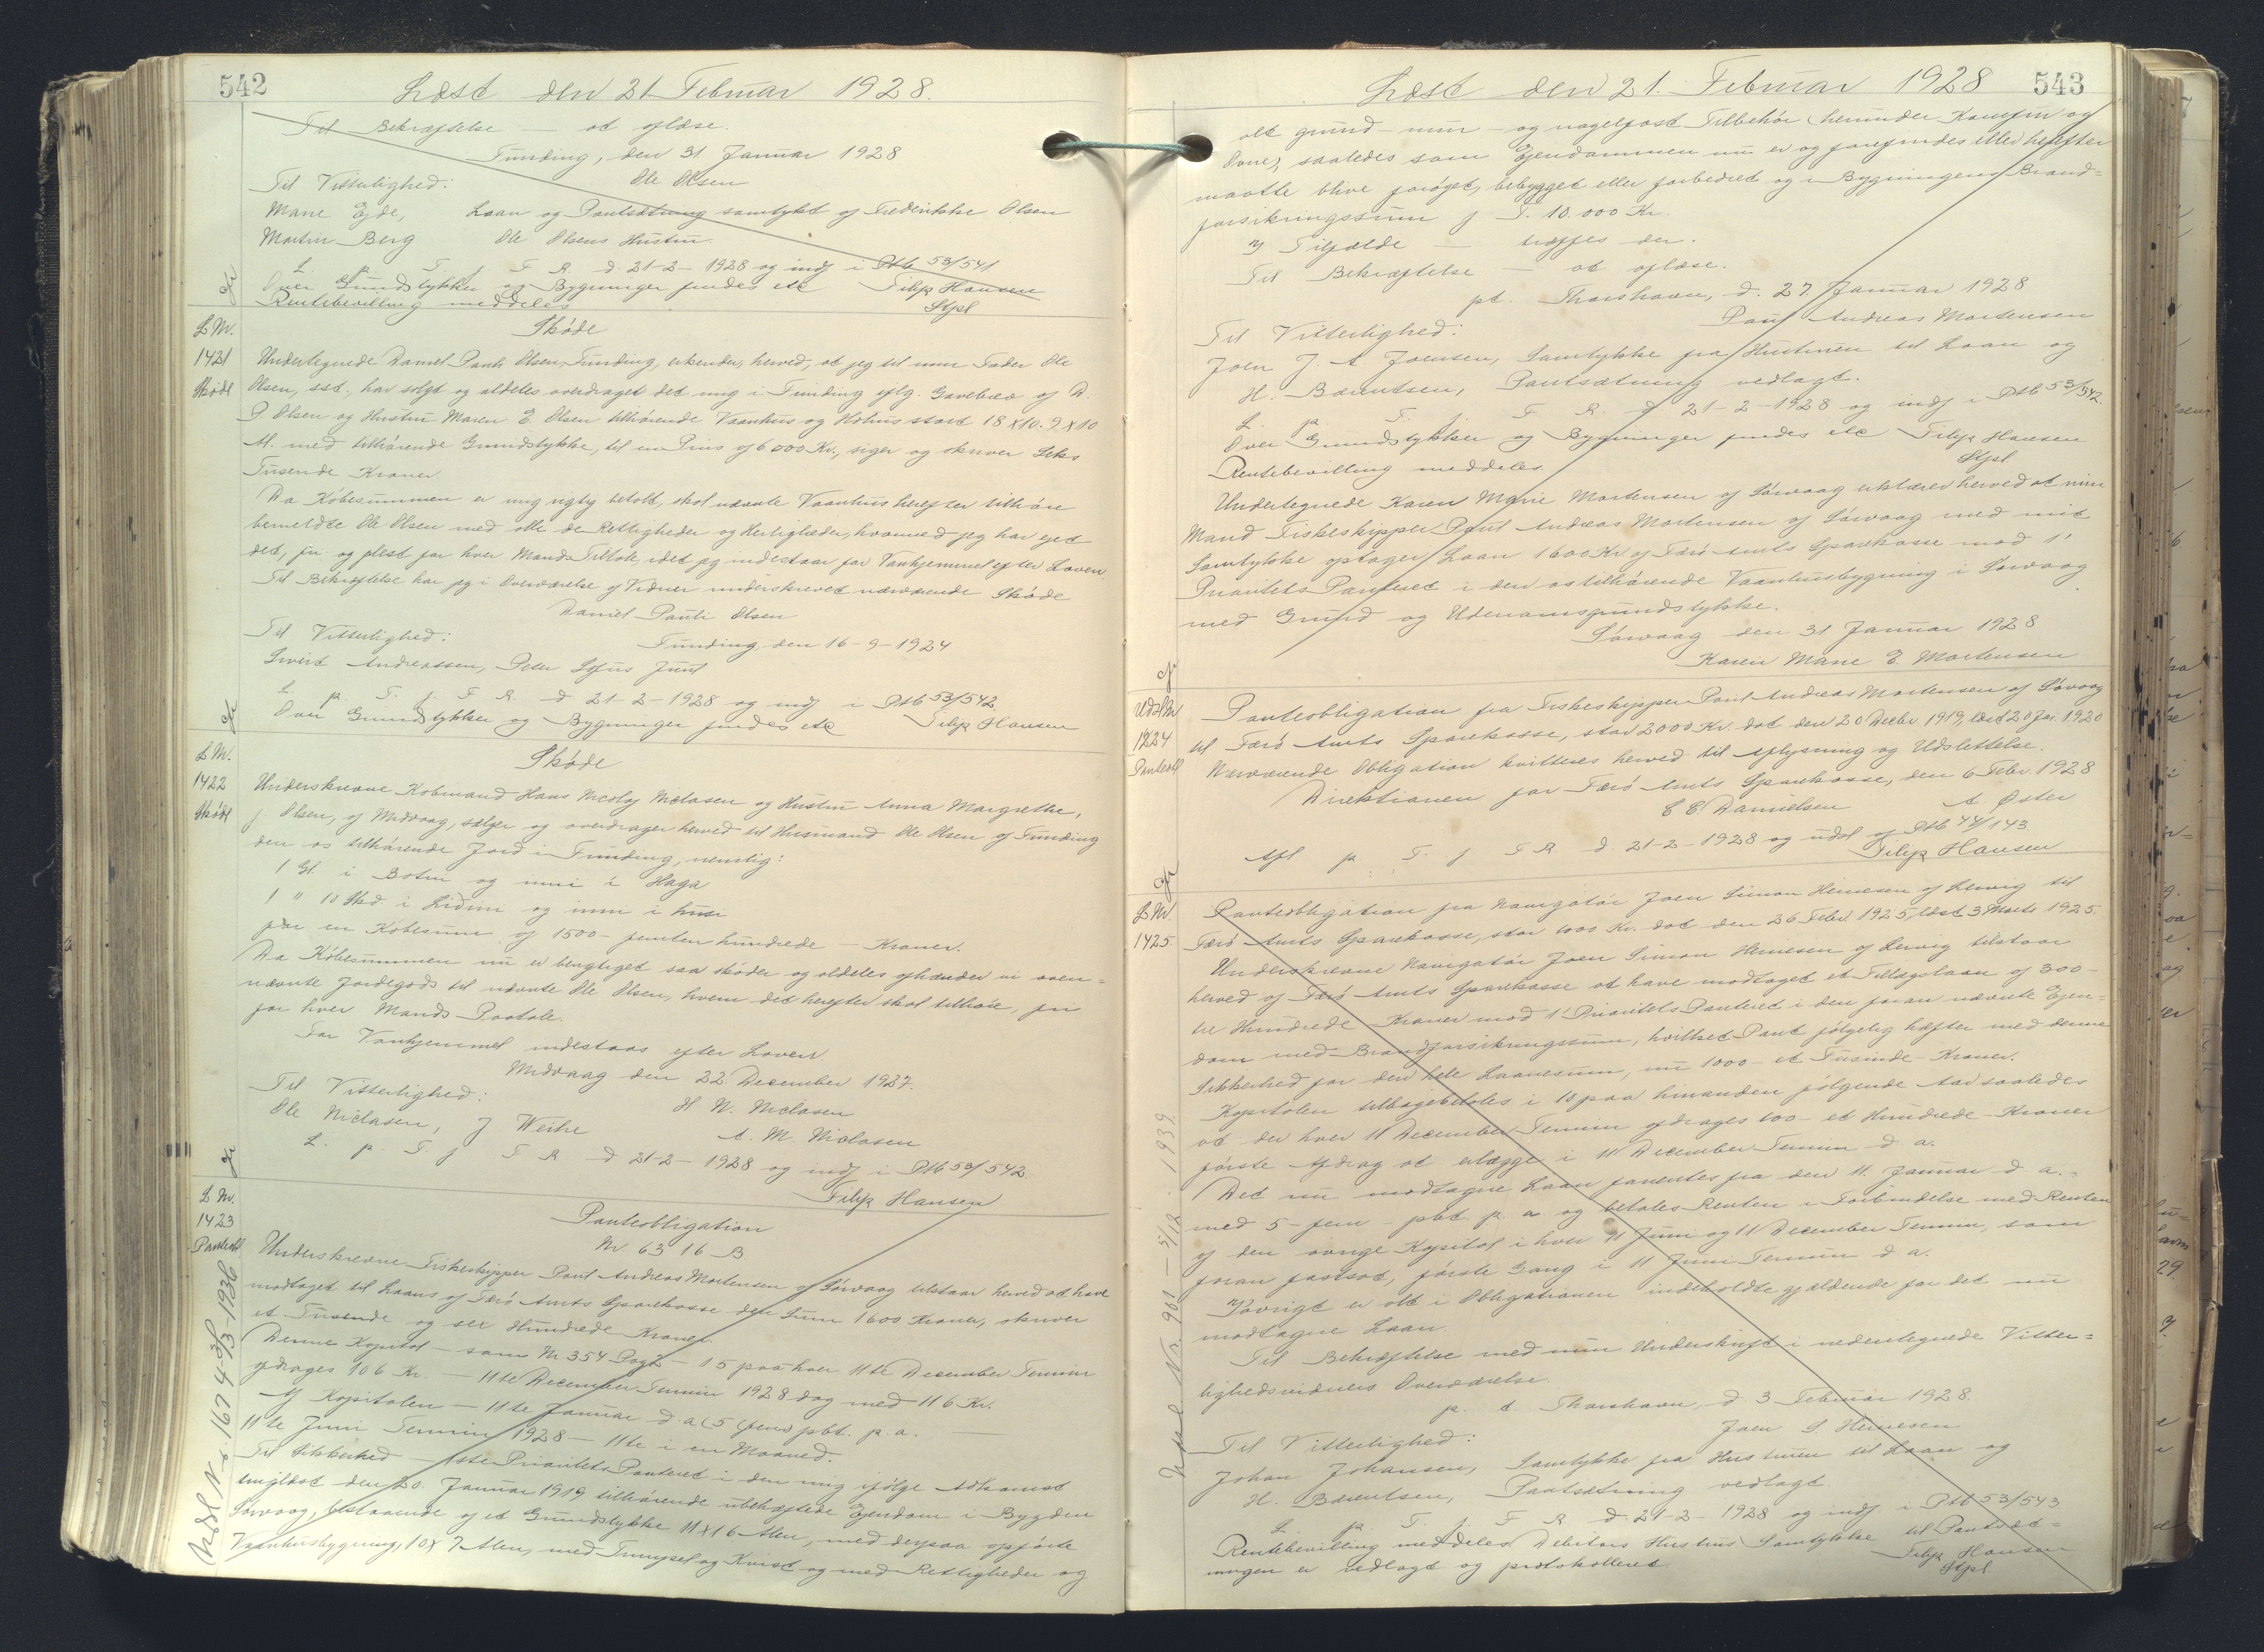 542
Læst den 21. Februar 1928.
Til Bekræftelse — at aflæse.
Funding, den 31. Januar 1928
Ole Olsen
Til Vitterlighed:
Marie Ejde, Laan og Pantsætning samtykt af Frederikke Olsen
Martin Berg Ole Olsens Hustru.
L. p. T. f. F. R. d. 21-2-1928 og indf i Ptb 53/541
Over Grundstykker og Bygninger findes etc Filip Hansen
Rentebevilling meddeles Stpl
L Nr.
1421
Skøde
Skøde
Undertegnede Daniel Pauli Olsen, Funding, erkender herved, at jeg til min Fader Ole
Olsen, sst., har solgt og aldeles overdraget det mig i Funding iflg. Gavebrev af D.
P. Olsen og Hustru Maren E. Olsen tilhørende Vaanhus og Hóhus stort 18 x 10. 9 x 10
Al. med tilhørende Grundstykke, til en Pris af 6000 Kr., siger og skriver Seks
Tusende Kroner.
Da Købesummen er mig rigtig betalt, skal nævnte Vaanhus herefter tilhøre
bemeldte Ole Olsen med alle de Rettigheder og Herligheder, hvormed jeg har ejet
det, fri og flest for hver Mands Tiltale, idet jeg indestaar for Vanhjemmel efter Loven
Til Bekræftelse har jeg i Overværelse af Vidner underskrevet nærværende Skøde
Daniel Pauli Olsen
Til Vitterlighed: Funding, den 16-9-1924
Sivert Andreassen, Peter Sofus Juul
L. p. T. f. F. R. d 21-2-1928 og indf i Ptb 53/542.
Over Grundstykker og Bygninger findes etc Filip Hansen
L Nr.
1422
Skøde
Skøde
Underskrevne Købmand Hans Nicolaj Niclasen og Hustru Anna Margrethe,
f. Olsen, af Midvaag, sælger og overdrager herved til Husmand Ole Olsen af Funding
den os tilhørende Jord i Funding, nemlig:
1 Gl. i Botni og inni i Haga
1 " 10 Skd. i Lidini og inni i husi
for en Købesum af 1500 - femten hundrede - Kroner.
Da Købesummen nu er berigtiget saa skøder og aldeles afhænder vi oven-
nævnte Jordegods til nævnte Ole Olsen, hvem det herefter skal tilhøre, fri
for hver Mands Paatale.
For Vanhjemmel indestaas efter Loven
Midvaag den 22 December 1927.
Til Vitterlighed: H N. Niclasen
Ole Niclasen, J Weihe A. M. Niclasen
L. p. T. f F R d 21-2-1928 og indf i Ptb 53/542
Filip Hansen
L Nr.
1423
Panteobl.
Panteobligation
Nr 6316 B
Underskrevne Fiskeskipper Poul Andreas Mortensen af Sørvaag tilstaar herved at have
modtaget til Laans af Færø Amts Sparekasse den Sum 1600 Kroner, skriver
et Tusende og seks Hundrede Kroner.
Denne Kapital - som Nr 354 Pag 2 - 15 paa hver 11te December Termin
afdrages 106 Kr. - 11te December Termin 1928 dog med 116 Kr.
Af Kapitalen - 11te Januar d. a (5 (fem) pbt. p. a.
11te Juni Termin 1928 - 11te i en Maaned.
Til Sikkerhed - 1ste Prioritets Panteret i den mig ifølge Adkomst
tinglæst den 20. Januar 1919 tilhørende ubehæftede Ejendom i Bygden
Sørvaag, bestaaende af et Grundstykke 11 x 16 Alen, med derpaa opførte
Vaanhusbygning, 10 x 7 Alen, med Tunnysel og Kvist og med Rettigheder og
Udsl Nr. 1674 - 3/3 - 1936
543
Læst den 21. Februar 1928
alt grund- mur- og nagelfast Tilbehør (herunder Komfur og
Ovne), saaledes som Ejendommen nu er og forefindes eller herefter
maatte blive forøget, bebygget eller forbedret og i Bygningens Brand-
forsikringssum f T. 10.000 Kr.
I Tilfælde — træffes der.
Til Bekræftelse — at aflæse.
pt. Thorshavn, d. 27. Januar 1928
Poul Andreas Mortensen
Til Vitterlighed:
Joen J. A. Joensen, Samtykke fra Hustruen til Laan og
H. Bærentsen, Pantsætning vedlagt.
L. p T. f. F R. d 21-2-1928 og indf i Ptb 53/542.
Over Grundstykker og Bygninger findes etc Filip Hansen
Rentebevilling meddeles Stpl
Undertegnede Karen Marie Mortensen af Sørvaag erklærer herved at min
Mand Fiskeskipper Poul Andreas Mortensen af Sørvaag med mit
Samtykke optager Laan 1600 Kr af Færø Amts Sparekasse mod 1'
Prioritets Panteret i den os tilhørende Vaanhusbygning i Sørvaag
med Grund og Udenomsgrundstykke.
Sørvaag den 31 Januar 1928
Karen Marie E. Mortensen
Udsl Nr
1224
Panteobl
Panteobligation fra Fiskeskipper Poul Andreas Mortensen af Sørvaag
til Færø Amts Sparekasse, stor 2000 Kr. dat den 20 Decbr. 1919, læst 20 Jan. 1920
Nærværende Obligation kvitteres herved til Aflysning og Udslettelse.
Direktionen for Færø Amts Sparekasse, den 6 Febr. 1928
E E Danielsen A Øster
Afl p. T. f F R d. 21-2-1928 og udsl af Ptb 44/143.
Filip Hansen
L Nr.
1425
Panteobligation fra Navigatør Joen Simon Heinesen af Lervig til
Færø Amts Sparekasse, stor 1000 Kr. dat den 26 Febr. 1925, læst 3 Marts 1925.
Underskrevne Navigatør Joen Simon Heinesen af Lervig tilstaar
herved af Færø Amts Sparekasse at have modtaget et Tillægslaan af 300 -
tre Hundrede Kroner mod 1' Prioritets Panteret i den foran nævnte Ejen-
dom med Brandforsikringssum, hvilket Pant følgelig hæfter med denne
Sikkerhed for den hele Laanesum, nu 1000 - et Tusinde - Kroner.
Kapitalen tilbagebetales i 10 paa hinanden følgende Aar saaledes
at der hver 11 December Termin afdrages 100 - et Hundrede - Kroner
første Afdrag at erlægge i 11 December Termin d. a.
Det nu modtagne Laan forrentes fra den 11. Januar d. a.
med 5 - fem - pbt. p. a. og betales Renten i Forbindelse med Renten
af den øvrige Kapital i hver 11 Juni og 11 December Termin, som
foran fastsat, første Gang i 11 Juni Termin d. a.
Iøvrigt er alt i Obligationen indeholdte gjældende for det nu
modtagne Laan.
Til Bekræftelse med min Underskrift i nedentegnede Vitter-
lighedsvidners Overværelse.
p. t. Thorshavn, d 3 Februar 1928.
Joen S. Heinesen
Til Vitterlighed:
Johan Johansen, Samtykke fra Hustruen til Laan og
H. Bærentsen, Pantsætning vedlagt.
L. p. T. f. F R. d. 21-2-1928 og indf i Ptb 53/543
Rentebevilling meddeles Debitors Hustrus Samtykke til Pantsæt-
ningen er vedlagt og protokolleret Filip Hansen
Stpl
Udsl Nr. 901 - 5/12 1939.